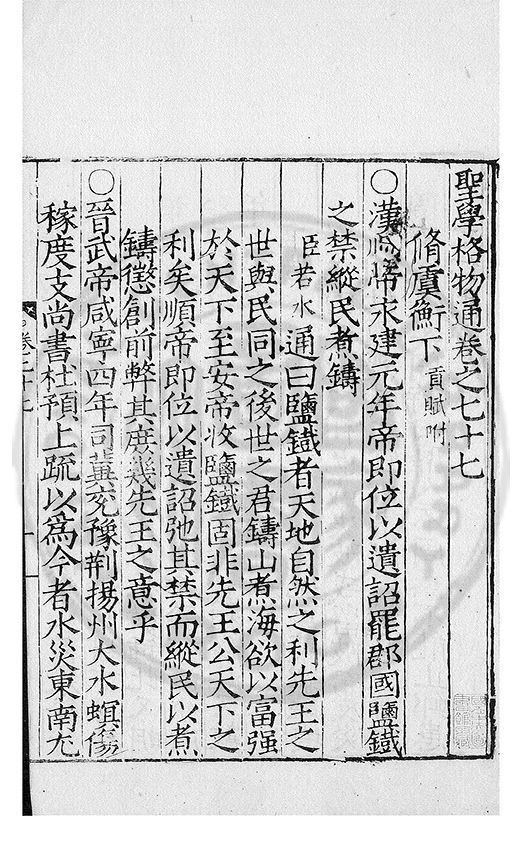 聖學格物通卷之七十七
脩虞衡下 貢賦附
○漢順帝永建元年帝即位以遺詔罷郡國鹽鐵
之禁縱民煮鑄
臣若水通曰鹽鐵者天地自然之利先王之
世與民同之後世之君鑄山煮海欲以富强
於天下至安帝收鹽鐵固非先王公天下之
利矣順帝即位以遺詔弛其禁而縱民以煮
鑄懲創前弊其庶幾先王之意乎
○晉武帝咸寧四年司冀兖豫荆揚州大水螟傷
稼度支尚書杜預上疏以爲今者水災東南尤
卷七十七